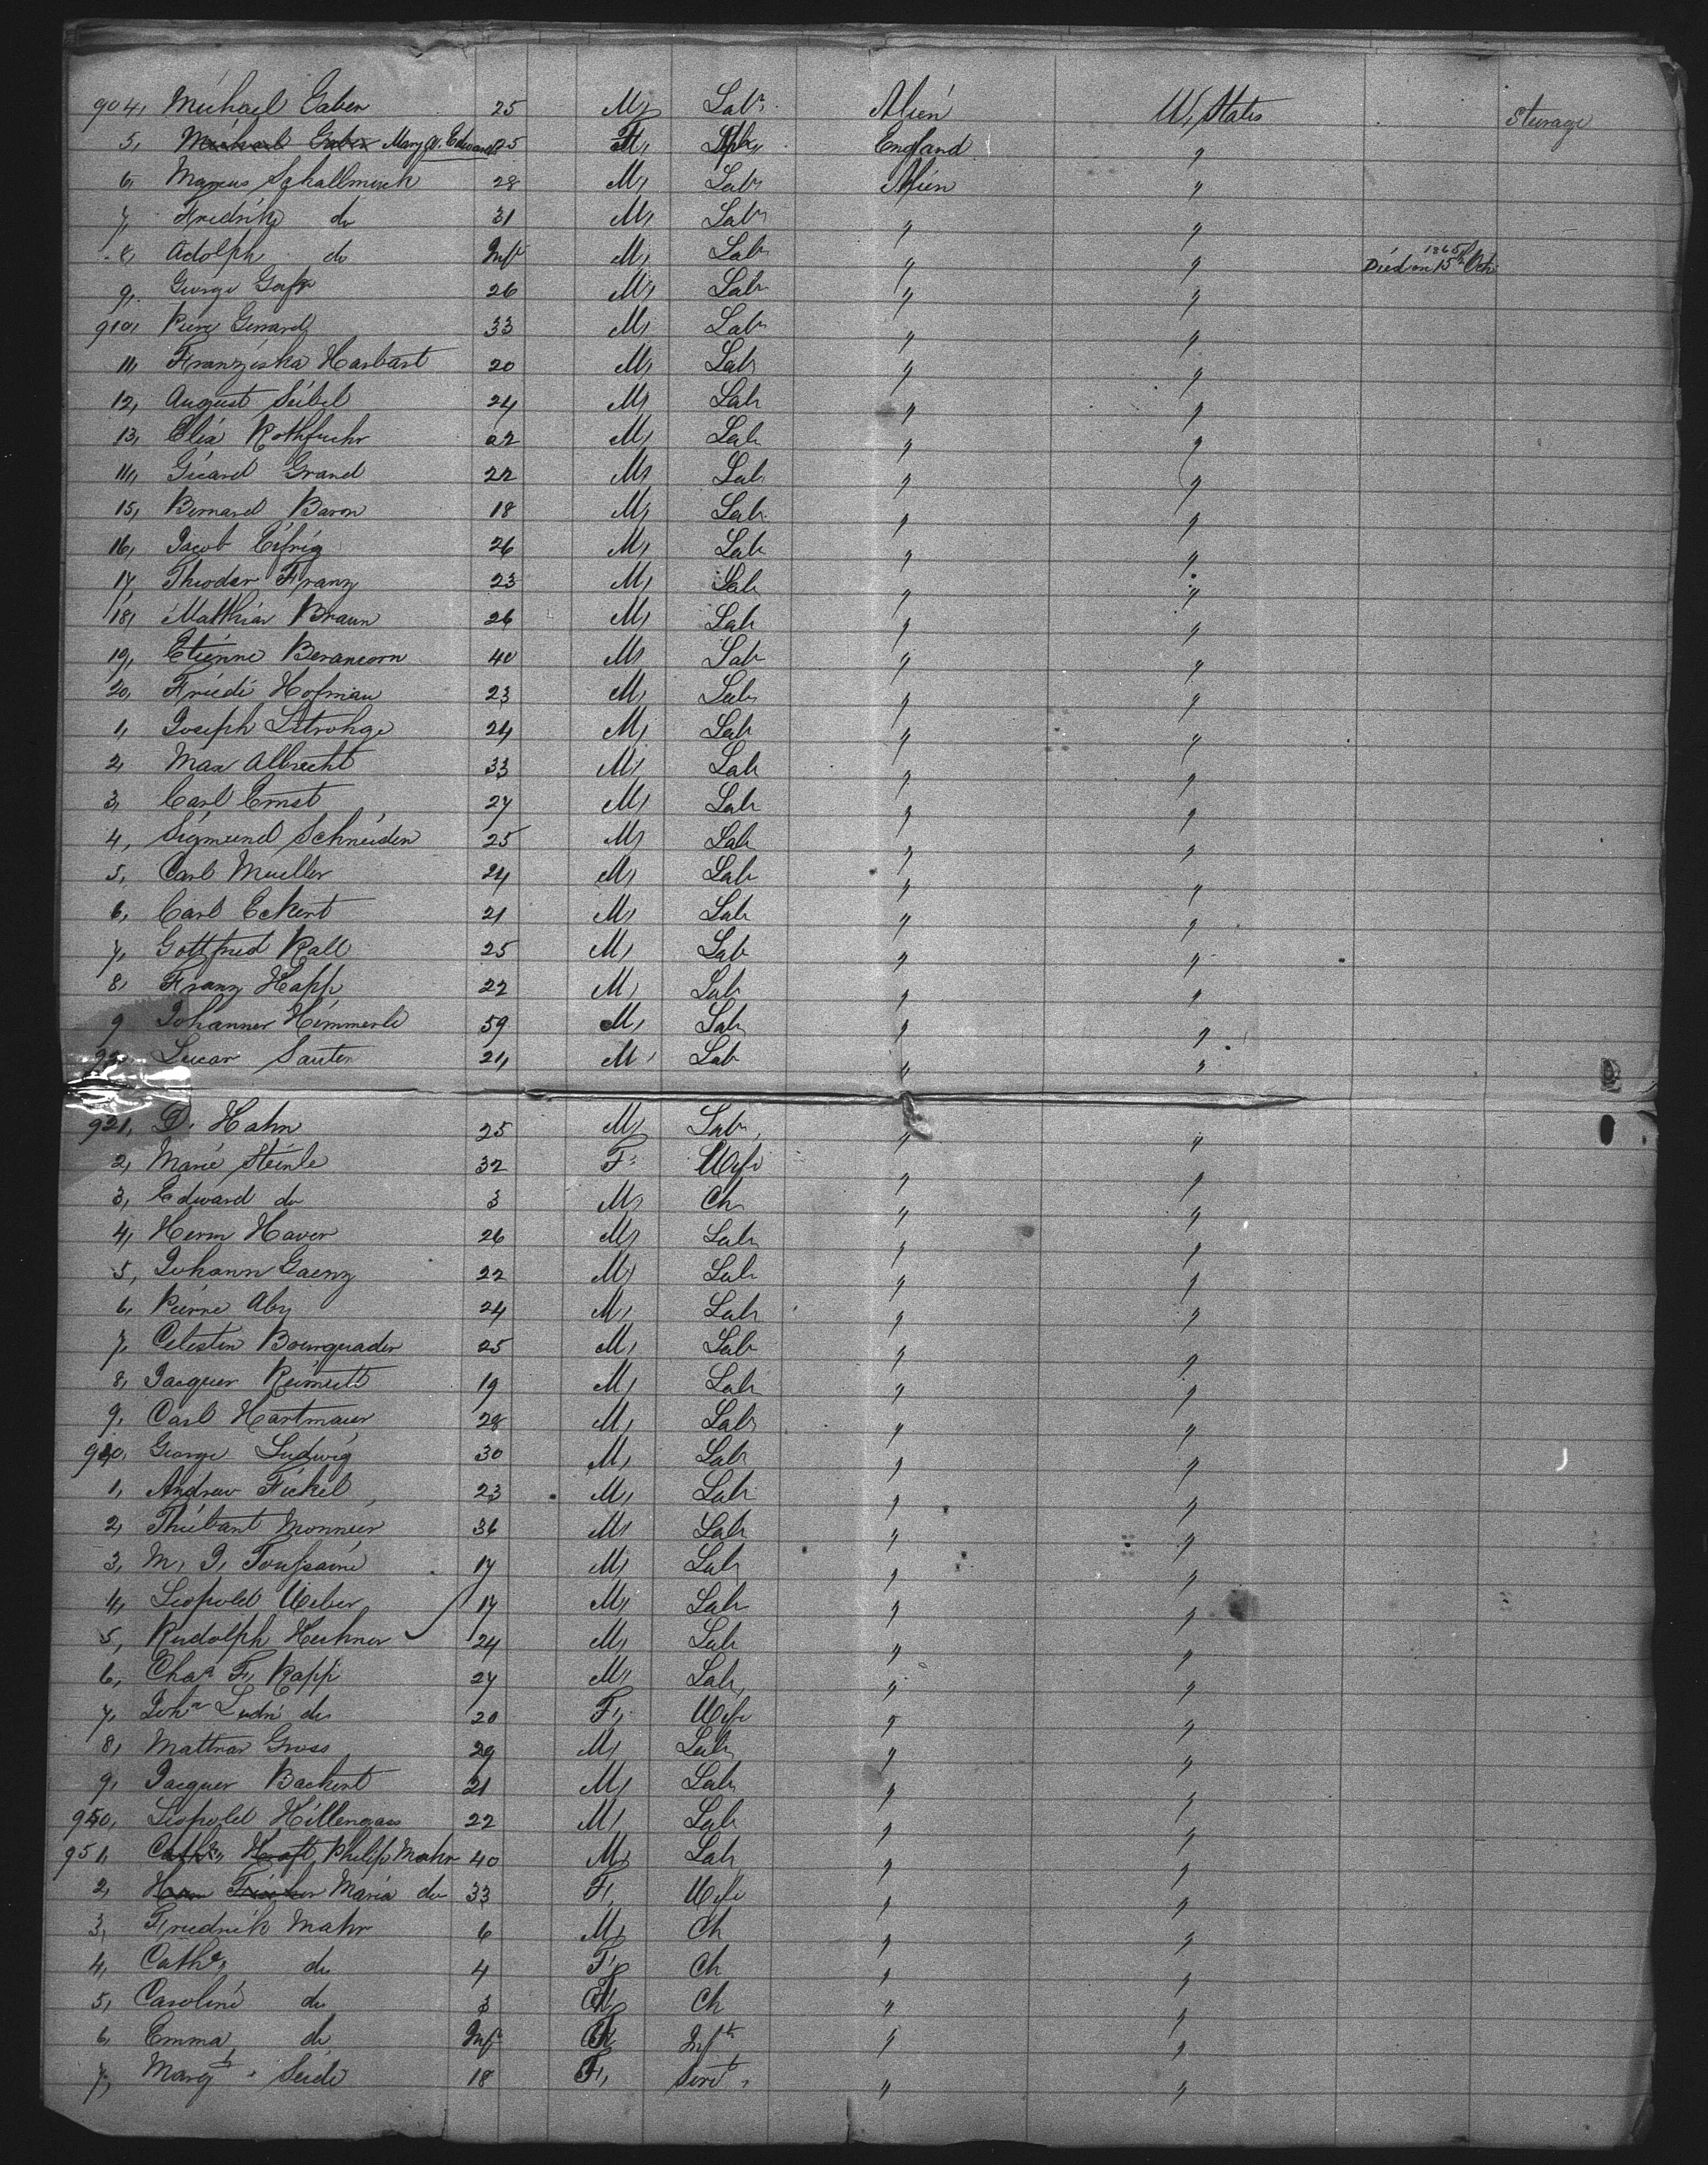 904, Michael Gaber 25 M, Labr. Alien U, States Steerage
5, Michael Gaber Mary A. Edwards 25 F, Spr, England "
6, Marcus Schallmuck 28 M, Labr Alien "
7, Fredrik do 31 M, Labr " "
8, Adolph do Inft M, Labr " " Died on 15th Octr 1865
9, George Gaff 26 M, Labr " "
910, Piere Gerrard 33 M, Labr " "
11, Franziska Harbast 20 M, Labr " "
12, August Seibel 24 M, Labr " "
13, Elia Rothfuchr 22 M, Labr " "
14, Gicard Grand 22 M, Lab " "
15, Bernard Baron 18 M, Labr " "
16, Jacob Eifrig 26 M, Labr " "
17 Theodor Franz 23 M, Labr " "
18, Matthias Braun 26 M, Labr " "
19, Etienne Berancorn 40 M, Labr " "
20, Friedi Hofman 23 M, Labr " "
1, Joseph Strohge 24 M, Labr " "
2, Max Albrecht 33 M, Labr " "
3, Carl Ernst 27 M, Labr " "
4, Sigmund Schneider 25 M, Labr " "
5, Carl Mueller 24 M, Labr " "
6, Carl Eckert 21 M, Labr " "
7, Gottfried Rall 25 M, Labr " "
8, Franz Happ 22 M, Labr " "
9 Johannes Himmerle 59 M, Labr " "
Lucas Sauter 24 M, Labr " "
921, D. Hahn 25 M, Labr, " "
2, Marie Steinle 32 F. Wife " "
3, Edward do 3 M, Ch " "
4, Herm Haver 26 M, Labr " "
5, Johann Gaenz 22 M, Labr " "
6, Pierre Aby 24 M, Labr " "
7, Celestin Bourquader 25 M, Labr " "
8, Jacques 19 M, Labr " "
9, Carl Hartmaier 28 M, Labr " "
940, George Ludwig 30 M, Labr " "
1, Andrew Fickel 23 M, Labr " "
2, Thiebant Monnier 36 M, Labr " "
3, M, J, Toussaine 17 M, Labr " "
4, Leopold Weber 17 M, Labr " "
5, Rudolph Hechner 24 M, Labr " "
6, Chas F, Rapp 27 M, Labr, " "
7, Joha Ludn do 20 F, Wife " "
8, Mattias Gross 29 M, Labr " "
9, Jacques Backert 21 M, Labr " "
950, Leopold Hillengass 22 M, Labr " "
951, Cathe, Kraft, Philip Mahr 40 M, Labr " "
2, Herm Fischer Maria do 33 F, Wife " "
3, Friedrich Mahr 6 M, Ch " "
4, Cathe, do 4 F, Ch " "
5, Caroline do 3 F, Ch " "
6, Emma, do Inft F, Inft " "
7, Margt. Seide 18 F, Servt, " "